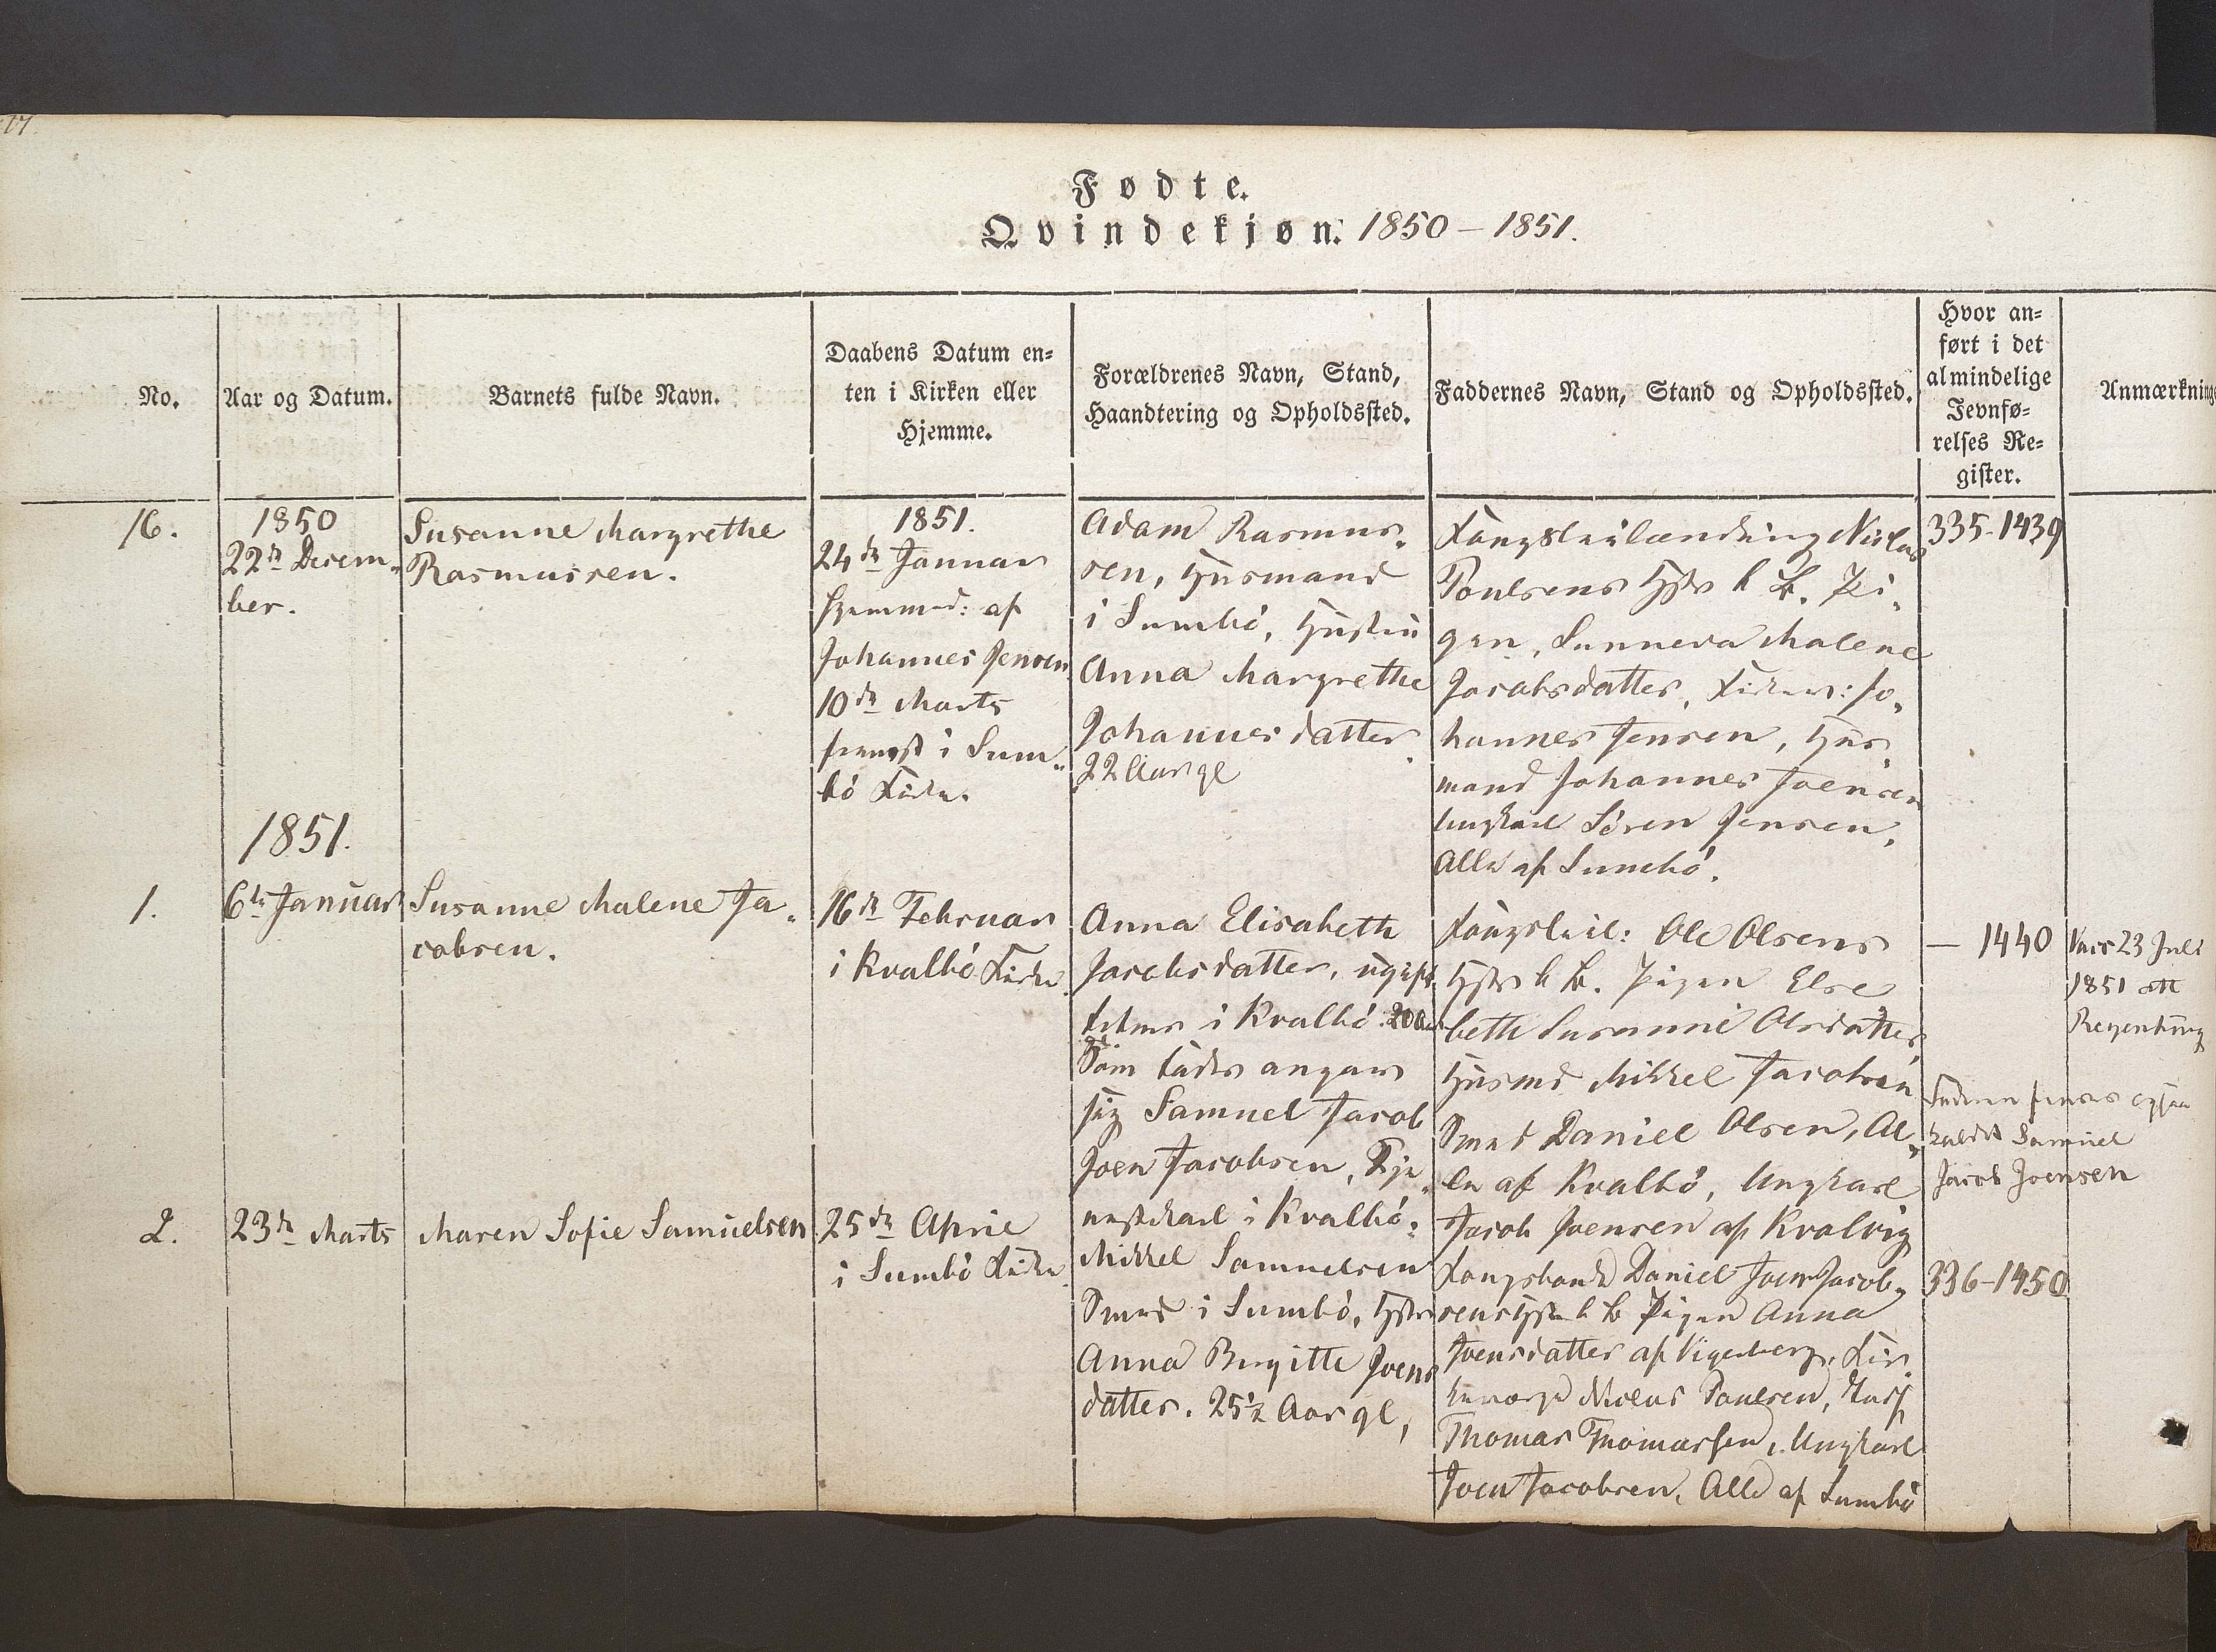 Fødte.
Qvindekjøn. 1850 – 1851.
No.
Aar og Datum.
Barnets fulde Navn.
Daabens Datum en-
ten i Kirken eller
Hjemme.
Forældrenes Navn, Stand,
Haandtering og Opholdssted.
Faddernes Navn, Stand og Opholdssted.
Hvor an-
ført i det
almindelige
Jevnfø-
relses Re-
gister.
Anmærkning
16.
1850
22de Decem-
ber.
Susanne Margrethe
Rasmussen.
1851.
24de Januar
hjemmed: af
Johannes Jensen
10de Marts
fremst i Sum-
bö Kirke.
Adam Rasmus-
sen, Huusmand
i Sumbö, Hustru
Anna Margrethe
Johannesdatter
22 Aar gl
Niclas
Poulsens Hstr b B. Pi-
gen, Sunneva Malene
Jacobsdatter, Jo-
hannes Jensen, Huus
mand Johannes Joensen
Ungkarl Sören Jensen,
Alle af Sumbö.
335-1439
1851.
1.
6te Januar
Susanne Malene Ja-
cobsen.
16de Februar
i Kvalbö Kirke.
Anna Elisabeth
Jacobsdatter, ugift
i Kvalbö. 20 Aar
gl
Som Fader angav
sig Samuel Jacob
Joen Jacobsen, Tje-
nestekarl i Kvalbö.
Ole Olsens
Hstr b B. Pigen Else
beth Susanne Olsdatter
Huusmd Mikkel Jacobsen
Daniel Olsen, Al-
le af Kvalbö, Ungkarl
Jacob Joensen af Kvalvig
— 1440
Vacc 23 Juli
1851 att
Faderen findes ogsaa
kaldet Samuel
Jacob Joensen
2.
23de Marts
Maren Sofie Samuelsen
25de April
i Sumbö Kirke.
Mikkel Samuelsen
i Sumbö, Hstru
Anna Birgitte Joens
datter. 25½ Aar gl,
Kongsbonde Daniel Joen Jacob-
sens Hstr b B Pigen Anna
Joensdatter af Vigerberg, Kir-
keværge Niclas Poulsen, Huusm
Thomas Thomassen, Ungkarl
Joen Jacobsen, Alle af Sumbö
336-1450